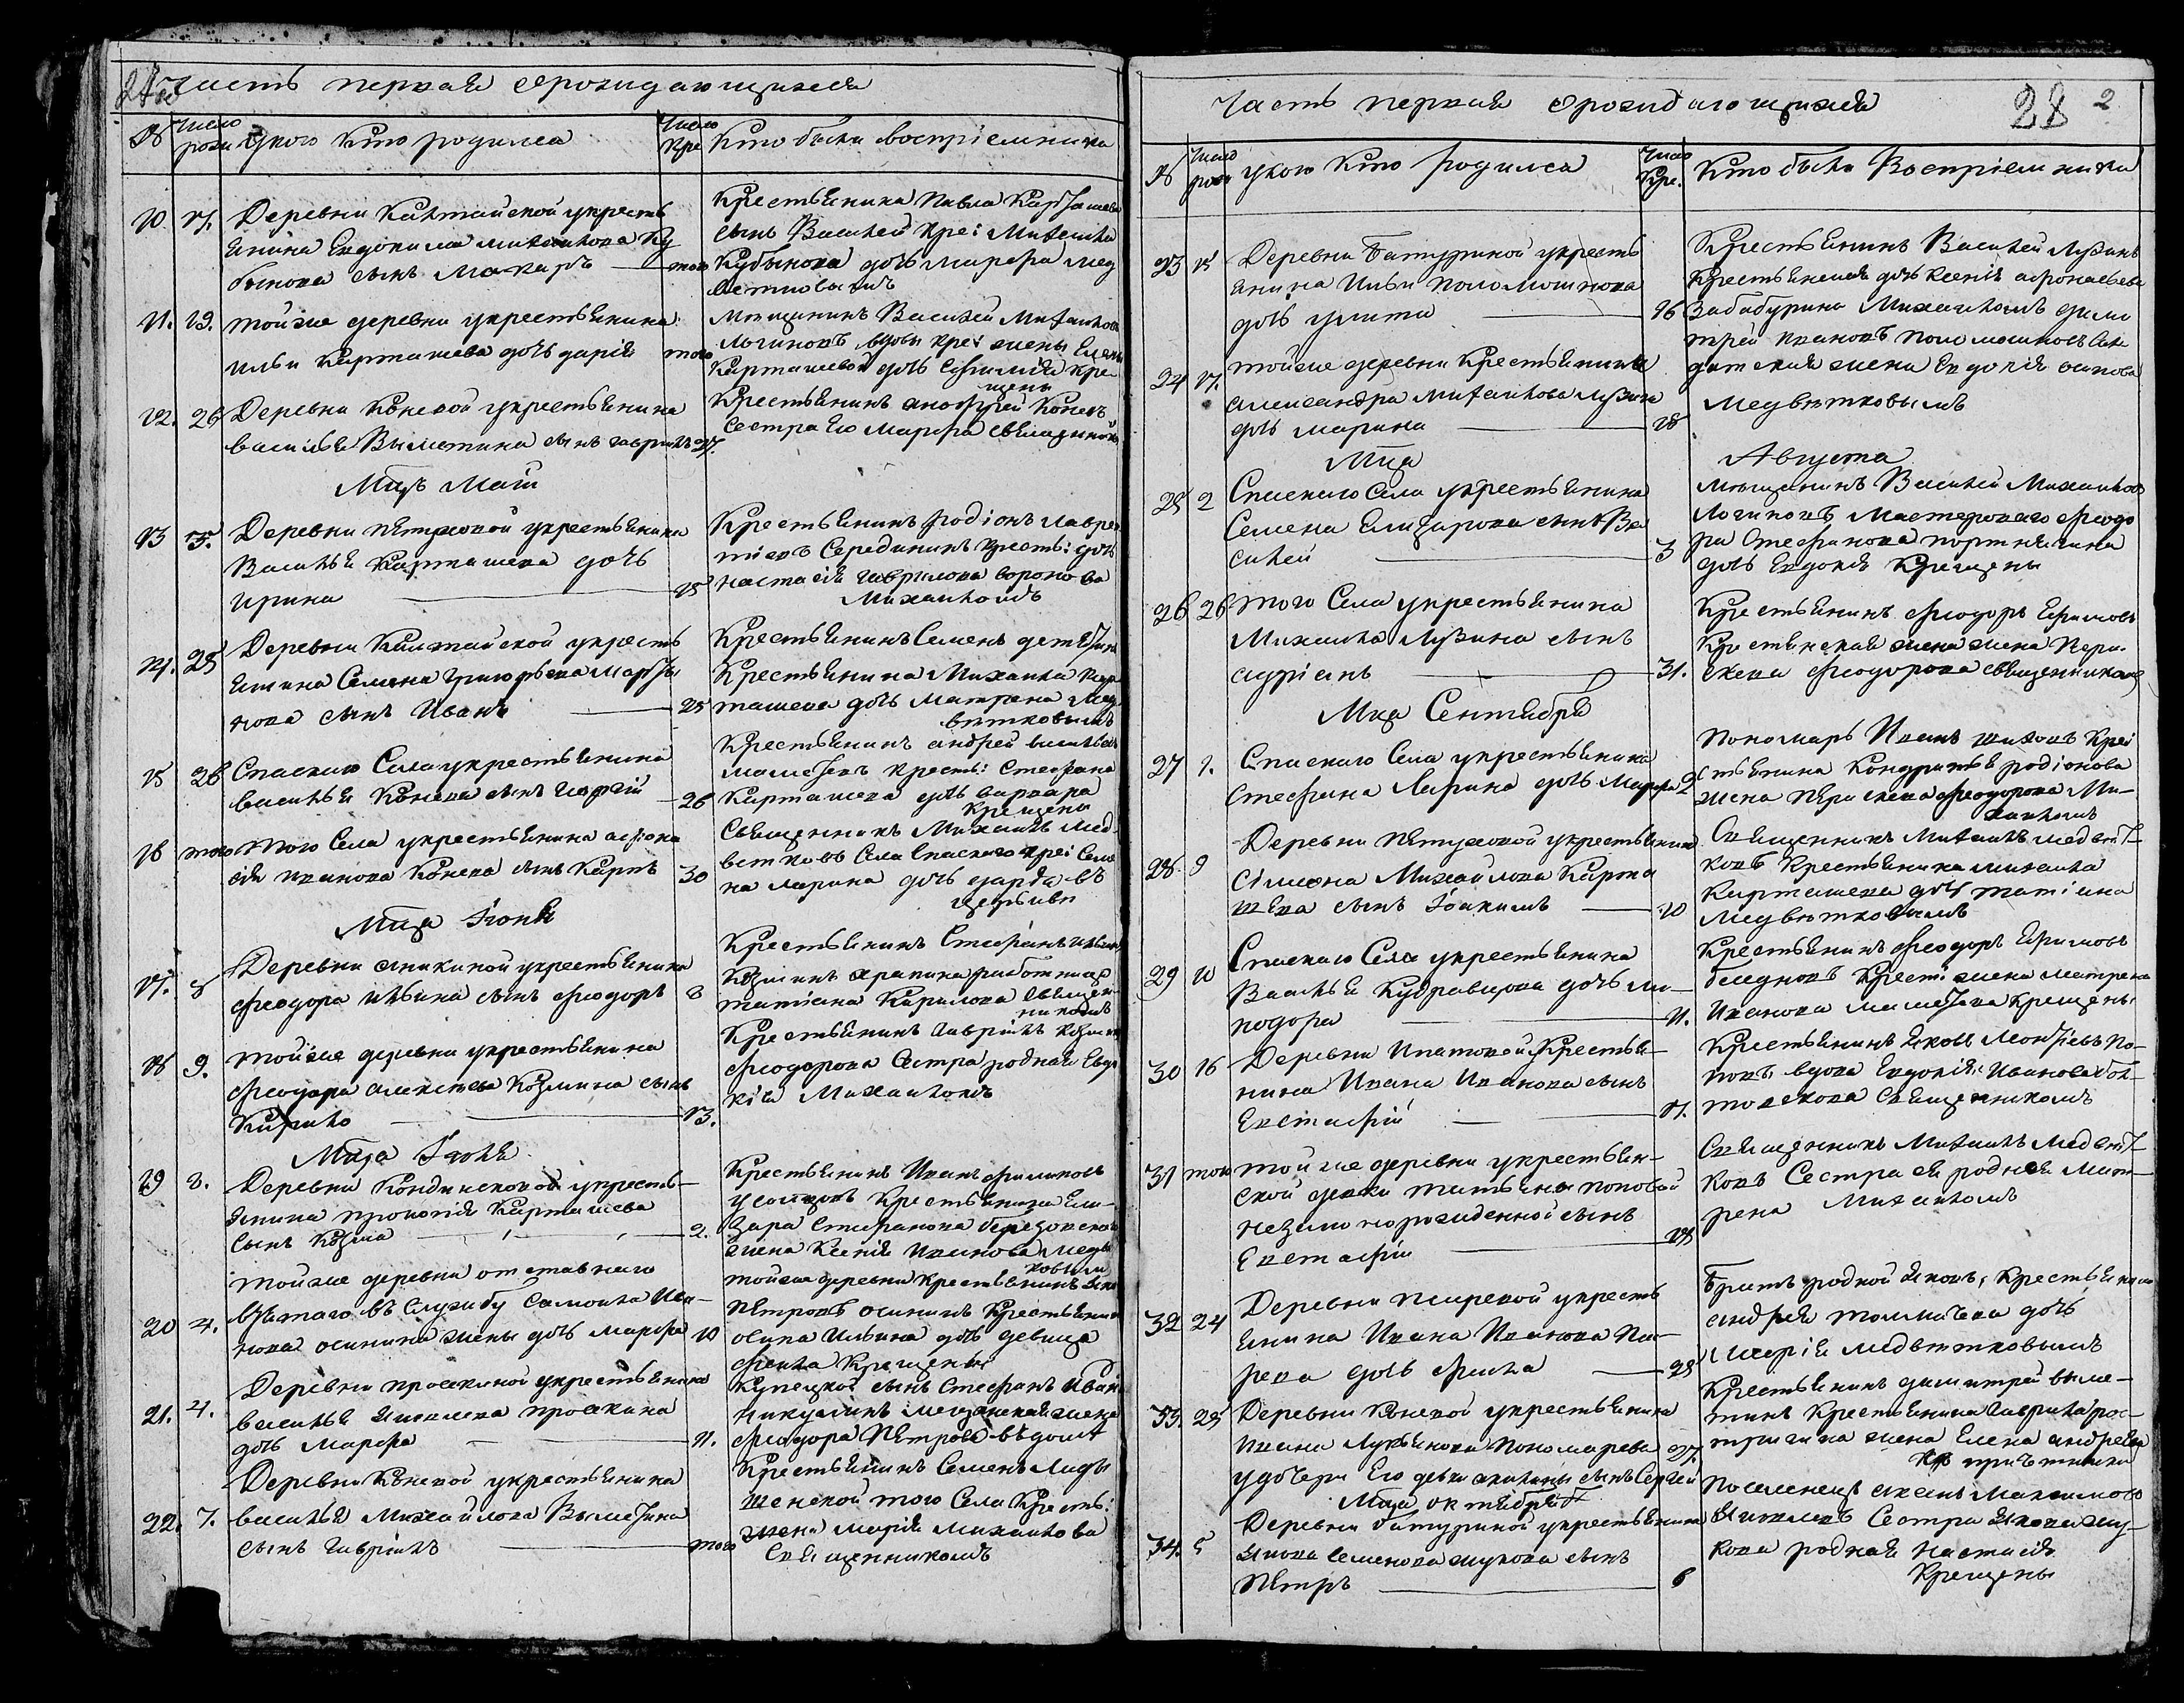 Часть первая о рождающихся
№ Число рож
укого кто родился
Число кре
Кто были воспріемники
10 17. Деревни Калтайской укресть
янина Евдокима Михаилова Ку
бынова сынъ Макаръ — того
Крестьянина Павла Карташева
сынъ Василей кре: Михаила
Кубынова дочь Марфа мед
ветковымъ
11. 19. тойже деревни укрестьянина
ильи Карташева дочь дарія того
Мещанинъ Василей Михаиловъ
Логиновъ вдовы кре: жены Елены
Карташевой дочь Ефимія кре
щены
12. 26 Деревни Коневой укрестьянина
василья Вымятина сынъ гавріилъ 27.
Крестьянинъ анофрей Коневъ
сестра его Марфа священикомъ
Мцъ Маій
13 5. Деревни Петуховой укрестьянина
Василья Карташева дочь
ирина — 15
Крестьянинъ родіонъ лаврен
тіевъ Серединин кресть: дочь
настасія гаврилова воронова
Михаиломъ
14. 25 Деревни Калтайской укресть
янина Семена григорьева
нова сынъ Иванъ — 25
Крестьянинъ Семенъ
Крестьянина Михаила Кар
ташева дочь Матрена Мед
вѣтковымъ
15 26 Спаскаго Села укрестьянина
василья Конева сынъ георгій — 26
Крестьянинъ андрей васильевъ
кресть: Стефана
Карташева дочь варвара
крещены
16 того того Села укрестьянина афона
сія иванова Конева сынъ Карпъ 30
Священникъ Михаилъ Мед
ветковъ Села Спаскаго кре: Семе
на ларина дочь
Мца Іюня
17. 8 Деревни аникиной укрестьянина
феодора ильина сынъ феодоръ 8
Крестьянинъ Стефанъ
Козминъ работница
татіана Кирилова Священ
никомъ
18 9. тойже деревни укрестьянина
феодора алексѣева Козмина сынъ
Кирило — 13.
Крестьянинъ гавріилъ козминъ
феодорова Сестра родная Евдо
кія Михаиломъ
Мца Іюля
19 2. Деревни Кондинсковой укресть
янина прокопія Карташева
сынъ Козма — 2.
Крестьянинъ Иванъ филиповъ
Крестьянина Ели
зара Стефанова
жена Ксенія Иванова медвет
ковым
20 4. тойже деревни отставнаго
взѣтаго въ службу Самоила Ива
нова осинина жены дочь марфа 10
тойже деревни крестьянинъ
Петровъ осининъ крестьянина
осипа Ильина дочь девица
фекла крещены
21. 4. Деревни проскиной укрестьянина
василья Яковлева проскина
дочь Марфа — 11.
Купецкой сынъ Стефанъ Иван
никулинъ мещанская жена
феодора Петрова
22. 7. Деревни Коневой укрестьянина
василья Михайлова Вымятина
сынъ гавріилъ — того
Крестьянинъ Семенъ
того Села Кресть:
жена марія Михаилова
Священникомъ
Часть первая о рождающихся
28 2
№ Число рож
укого кто родился
Число Кре.
Кто были Воспріемники
23 15 Деревни Батуриной укресть
янина Ильи поломошнова
дочь улита — 16
Крестьянинъ Василей Лузинъ
крестьянская дочь Ксенія афонасьева
Забабурина Михаиломъ
24 17. тойже деревни Крестьянина
александра Михаилова лузина
дочь марина — 18
трей ивановъ поломошновъ
датская жена Евдокія осипова
Медвѣтковымъ
Мца Августа
25 2 Спаскаго Села укрестьянина
Семена Елизарова сынъ Ва
силей — 3
Мещанинъ Василей Михаиловъ
Логиновъ мастероваго феодо
ра Стефанова портнягина
дочь Евдокія Крещены
26 26 того Села укрестьянина
Михаила Лузина сынъ
адріанъ — 31.
Крестьянинъ феодоръ Ефимовъ
Крестьянская жена жена Пара
скева феодорова священникомъ
Мца Сентября
27 1. Спаскаго Села укрестьянина
Стефана Ларина дочь Марфа 2
Пономарь Иванъ шиховъ кре
стьянина Кондратья родіонова
жена Параскева феодорова Ми
хаиломъ
28. 9 Деревни Петуховой укрестьянина
Симеона Михайлова Карта
шева сынъ Іоакимъ — 10
Священникъ Михаилъ медвѣт
ковъ крестьянина михаила
Карташева дочь татіана
Медвѣтковымъ
29 10 Спаскаго Села укрестьянина
Василья Кудравцова дочь ми
нодора — 11.
Крестьянинъ феодоръ Ефимовъ
бедновъ Крест: жена матрена
Иванова Крещены
30 16 Деревни Ипатовой Крестья
нина Ивана Иванова сынъ
Евстафій — 17.
Крестьянинъ Яковъ Леонтьевъ по
повъ вдова Евдокія Иванова
Священникомъ
31 того той же деревни укрестьян
ской девки татьяны поповой
незаконорожденной сынъ
Евстафій — 18
Священникъ Михаилъ Медвѣт
ковъ Сестра ея родная Мат
рена Михаиломъ
32 24 Деревни Писаревой укресть
янина Ивана Иванова Пи
рева дочь фекла — 28
Братъ родной Яковъ, крестьянина
андрея толмачева дочь
Марія медвѣтковымъ
33. 25 Деревни Коневой укрестьянина
Ивана Лукьянова Пономарева 27.
у дочери Его девки сынъ Сергей
Крестьянинъ димитрей выме
тинъ Крестьянина гаврила рос
тригина жена Елена андреева
Мца октября
34. 5 Деревни батуриной укрестьянина
Якова Семенова жукова сынъ
Петръ — 6
Поселенецъ Максимовъ
Яковлевъ Сестра Якова жу
кова родная Настасія
Крещены